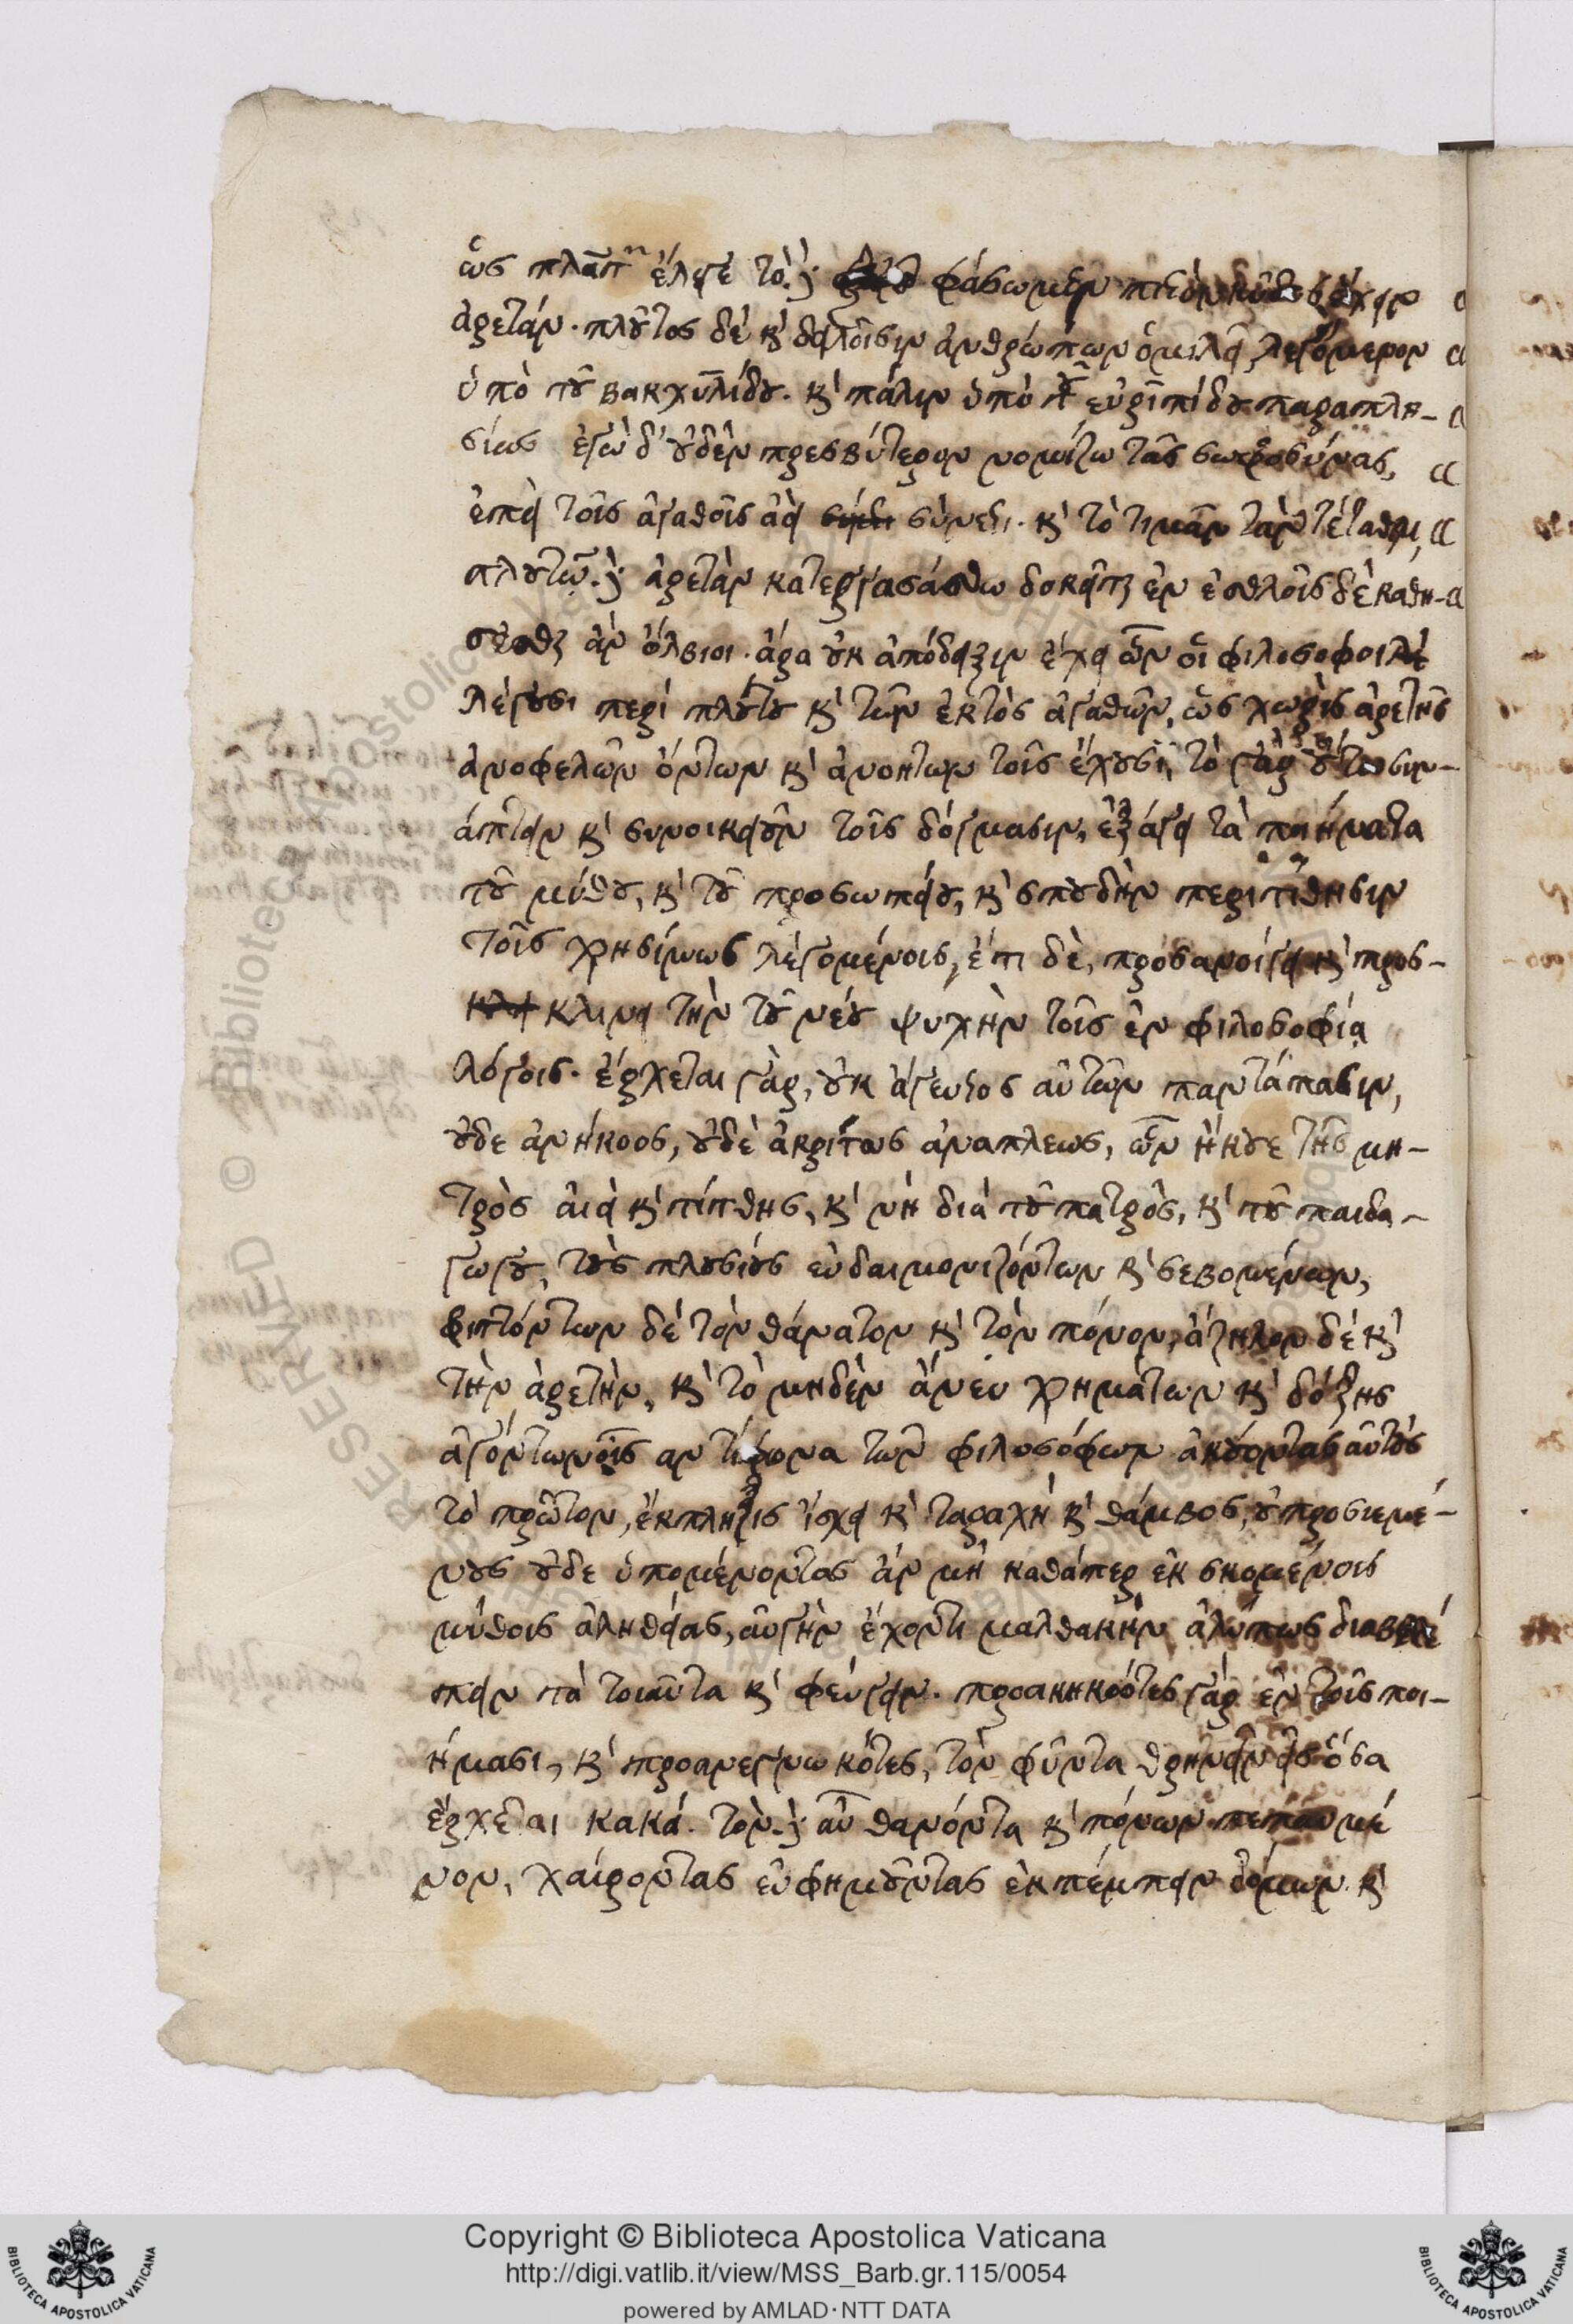 ὡς πλάτ ἔλεγε τὸ φάσωμεν πιστὸν κῦδος ἔχειν
ἀρετάν. πλοῦτος δὲ κὶ δειλοῖσιν ἀνθρώπων ὁμιλεῖ, λεγόμενον
ὑπὸ τοῦ βακχυλίδου. κὶ πάλιν ὑπὸ τοῦ εὐριπίδου παραπλη-
σίως ἐγὼ δ' οὐδὲν πρεσβύτερον νομίζω τᾶς σωφροσύνας,
ἐπεὶ τοῖς ἀγαθοῖς ἀεὶ σύνεστι. κὶ τὸ τιμὰν τέταθμαι,
πλούτῳ ἀρετὰν κατεργασάσθω δοκεῖτε ἐν ἐσθλοῖς δὲ καθη-
σεσθε ἂν ὄλβιοι. ἆρα οὐκ ἀπόδειξιν ἔχει ὧν οἱ φιλοσοφοι
λέγουσι περὶ πλούτου κὶ τῶν ἐκτὸς ἀγαθῶν, ὡς χωρὶς ἀρετῆς
ἀνοφελῶν ὄντων κὶ ἀνοητων τοῖς ἔχουσι, τὸ γὰρ οὕτω συν-
άπτειν κὶ συνοικειοῦν τοῖς δόγμασιν, ἐξάγει τὰ ποιήματα
τοῦ μύθου, κὶ τοῦ προσωπείου, κὶ σπουδὴν περιτίθησιν
τοῖς χρησίμως λεγομένοις, ἔτι δὲ, προσανοίγει κὶ προς-
κλινει τὴν τοῦ νέου ψυχὴν τοῖς ἐν φιλοσοφίᾳ
λόγοις. ἔρχεται γὰρ, οὐκ ἄγευστος αὐτῶν παντάπασιν,
οὐδε ἀνήκοος, οὐδὲ ἀκρίτως ἀναπλεως, ὧν ἤκουε τῆς μη-
τρὸς ἀιεὶ κὶ τίτθης, κὶ νὴ δία τοῦ πατρὸς, κὶ τοῦ παιδα-
γωγοῦ, τοὺς πλουσίους εὐδαιμονιζόντων κὶ σεβομένων,
φριττόντων δὲ τὸν θάνατον κὶ τὸν πόνον, ἄζηλον δὲ κὶ
τὴν ἀρετὴν, κὶ τὸ μηδὲν ἄνευ χρημάτων κὶ δόξης
ἀγόντων οἷς αντίφωνα τῶν φιλοσόφων ἀκούοντας αὐτοὺς
τὸ πρῶτον, ἔκπληξις ἴσχει κὶ ταραχὴ κὶ θάμβος, οὐ προσιεμέ-
νους οὐδε ὑπομένοντας ἂν μὴ καθάπερ ἐκ σκομένοις
μύθοις ἀληθείας, αὐγὴν ἔχοντι μαλθακὴν ἀλύπως διαβλέ
πειν τὰ τοιαῦτα κὶ φεύγειν. προακηκοότες γὰρ ἐν τοῖς ποι-
ήμασι, κὶ προανεγνωκότες, τὸν φῦντα θρηνεῖν εἰς ὅσα
ἔρχεται κακά. τὸν αὖ θανόντα κὶ πόνων πεπαυμέ
νον, χαίροντας εὐφημοῦντας ἐκπέμπειν δόμων κὶ
Copyright © Biblioteca Apostolica Vaticana
http://digi.vatlib.it/view/MSS_Barb.gr.115/0054
powered by AMLAD·NTT DATA
BIBLIOTECA APOSTOLICA VATICANA
BIBLIOTECA APOSTOLICA VATICANA